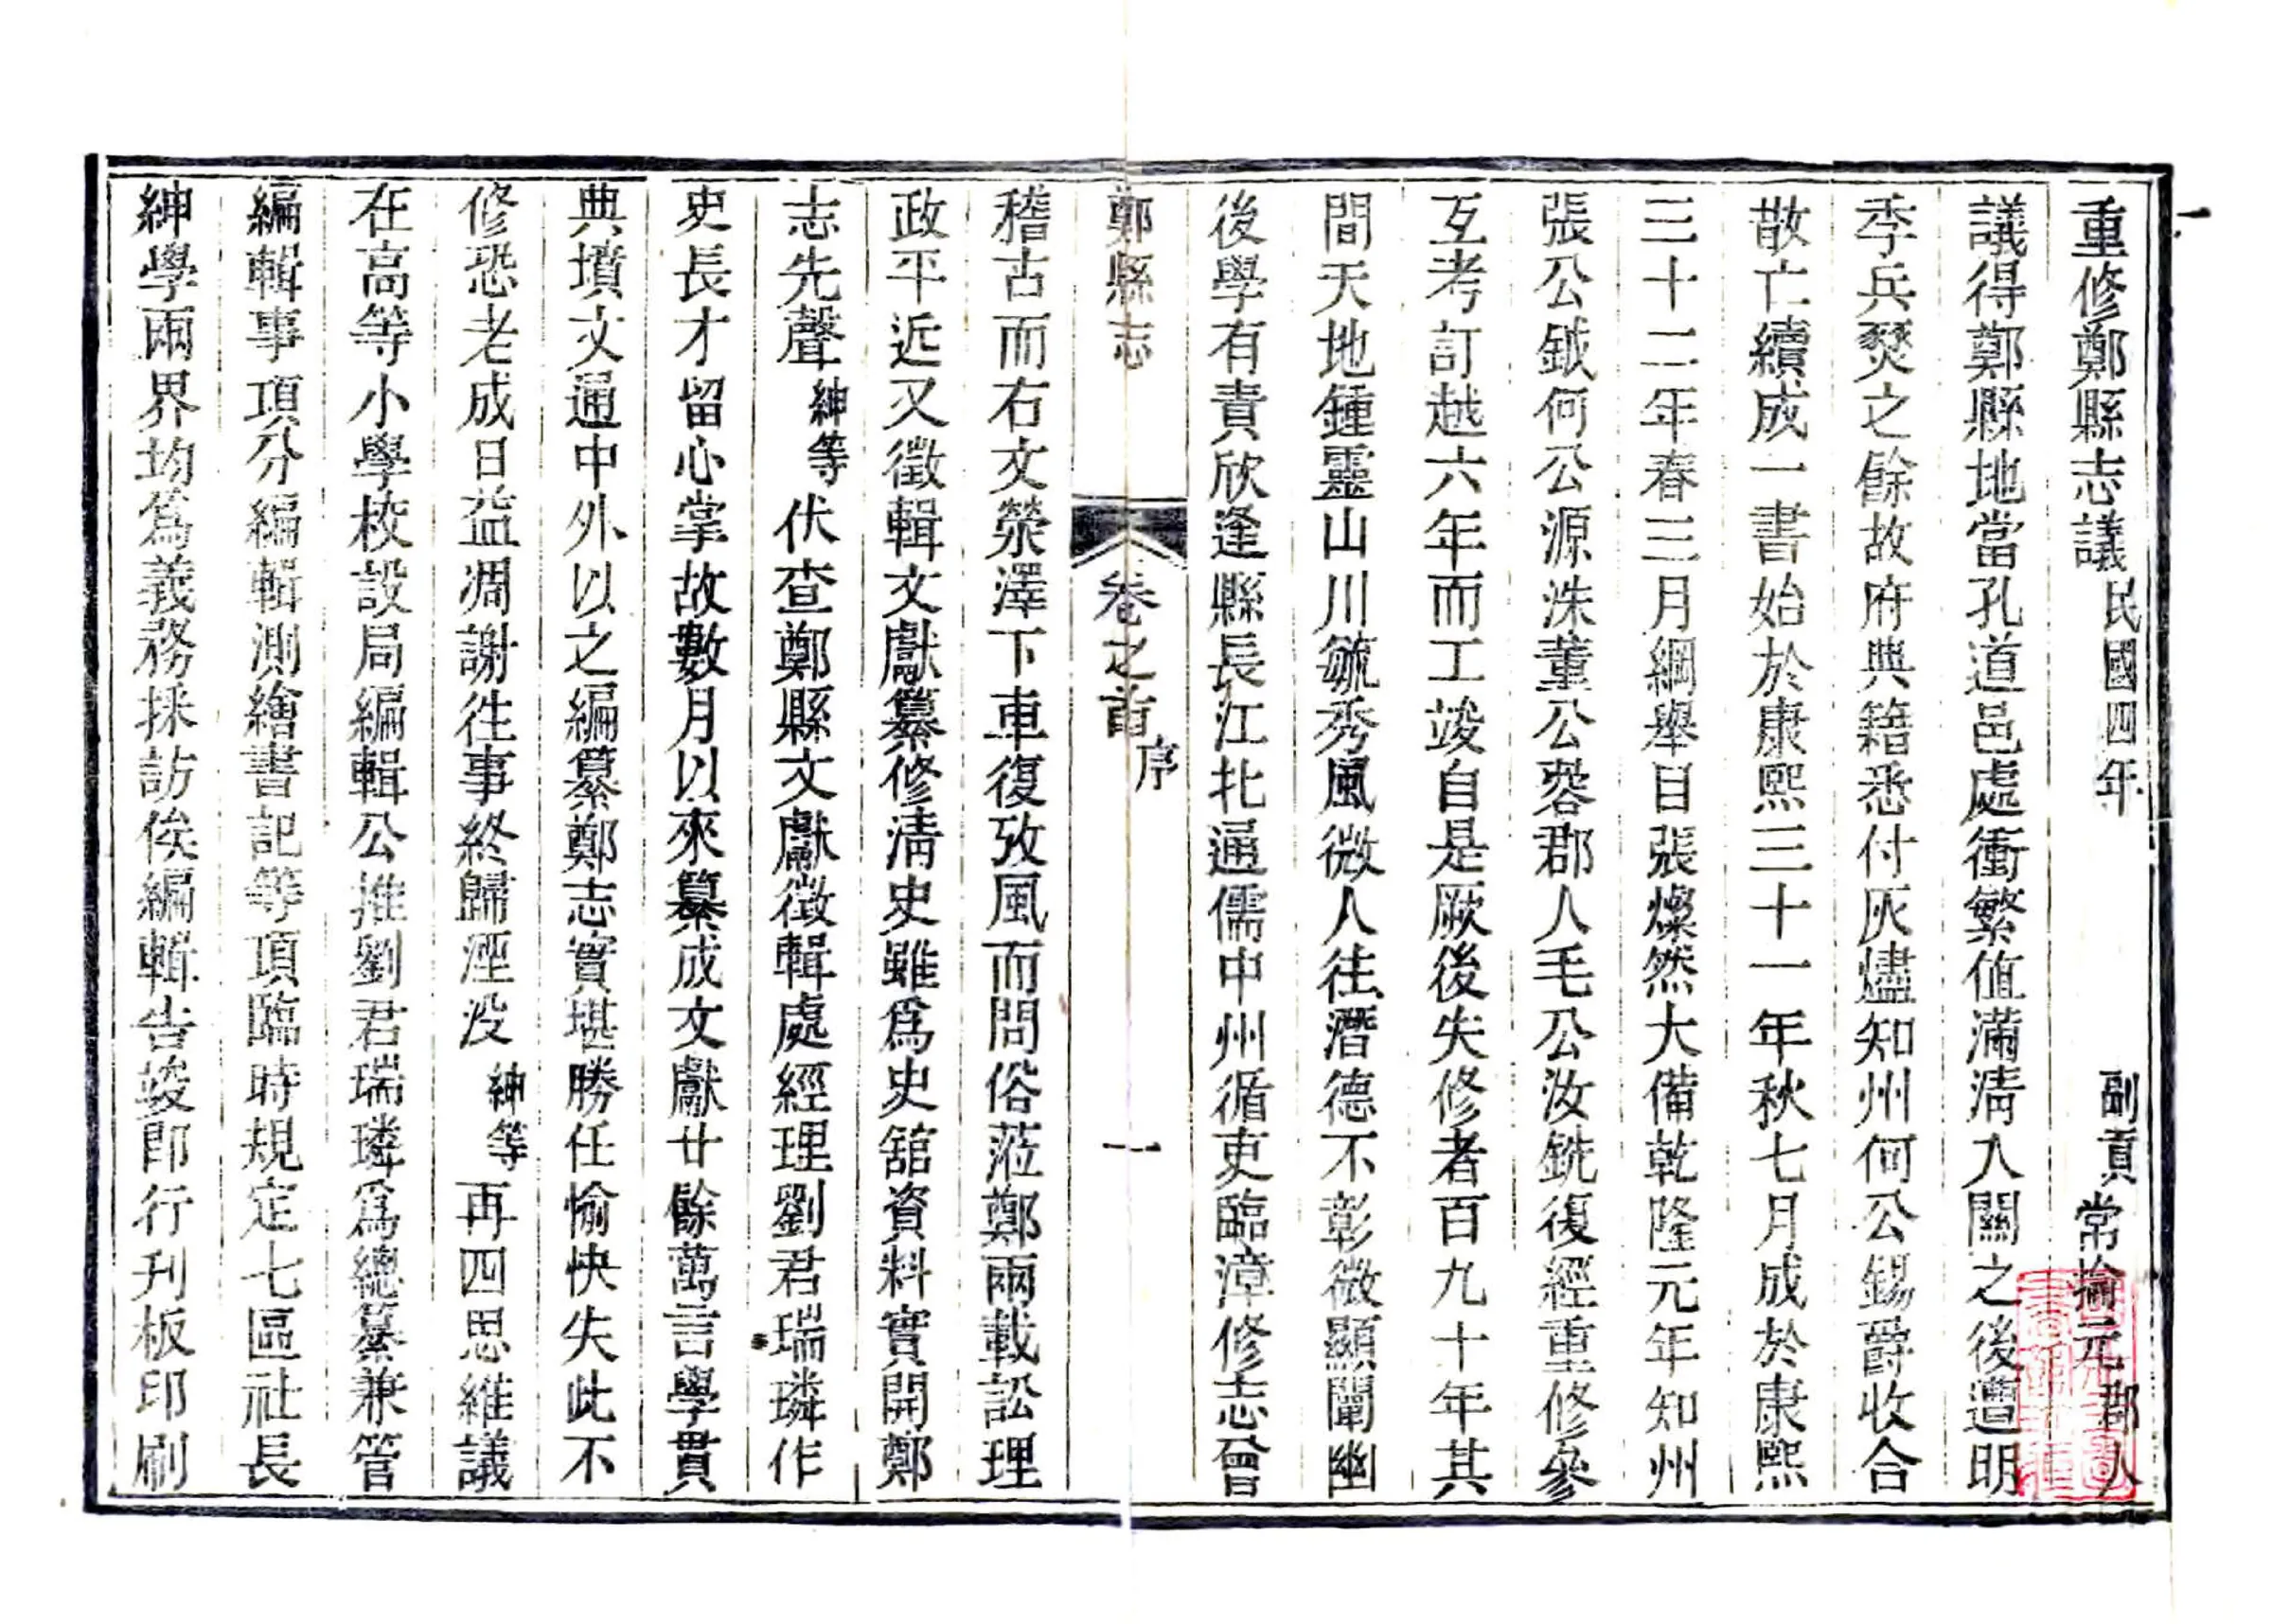 一
重修鄭縣志議 民國四年 副貢 常掄元 郡人
議得鄭縣地當孔道邑處衝繁值滿清入關之後遭明
季兵燹之餘故府典籍悉付灰燼知州何公錫爵收合
散亡續成一書始於康熙三十一年秋七月成於康熙
三十二年春三月綱舉目張燦然大備乾隆元年知州
張公鉞何公源洙董公榕郡人毛公汝詵復經重修參
互考訂越六年而工竣自是厥後失修者百九十年其
間天地鍾靈山川毓秀風微人往潛德不彰微顯闡幽
後學有責欣逢縣長江北通儒中州循吏臨漳修志曾
鄭縣志 卷之首 序 一
稽古而右文滎澤下車復攷風而問俗蒞鄭兩載訟理
政平近又徵輯文獻纂修清史雖爲史舘資料實開鄭
志先聲紳等伏查鄭縣文獻徵輯處經理劉君瑞璘作
史長才留心掌故數月以來纂成文獻廿餘萬言學貫
典墳文通中外以之編纂鄭志實堪勝任愉快失此不
修恐老成日益凋謝徃事終歸湮没紳等再四思維議
在高等小學校設局編輯公推劉君瑞璘爲總纂兼管
編輯事項分編輯測繪書記等項臨時規定七區社長
紳學兩界均爲義務採訪俟編輯告竣卽行刋板印刷